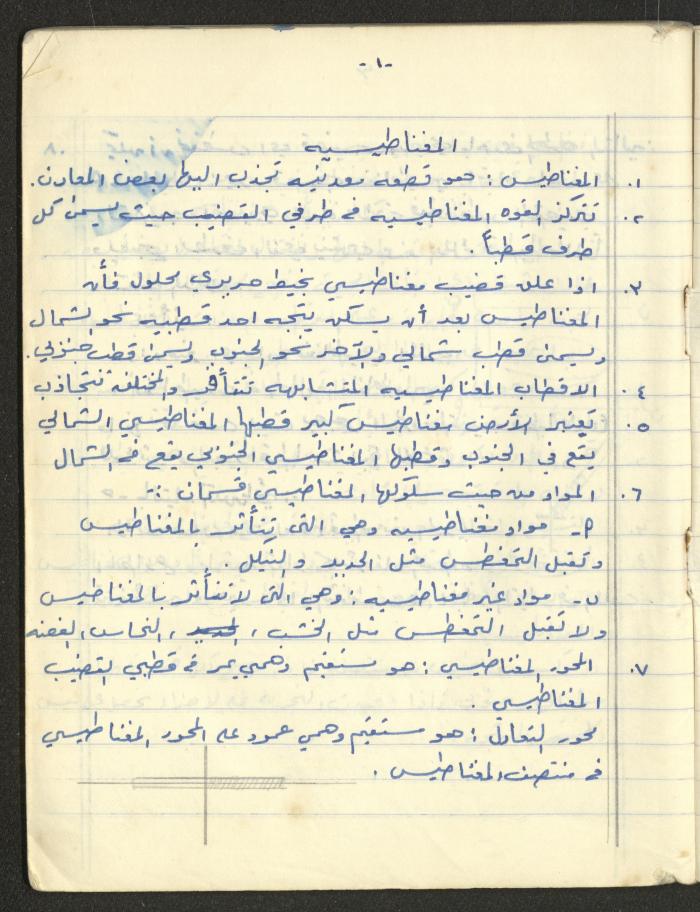 -١-
المغناطيسيه
١. المغناطيس : هو قطعه معدنيه تجذب اليها بعض المعادن.
٢. تتركز القوه المغناطيسيه في طرفي القضيب حيث يسمى كل
طرف قطباً .
٣. اذا علق قضيب مغناطيسي بخيط حريري محلول فأن
المغناطيس بعد أن يسكن يتجه احد قطبيه نحو الشمال
ويسمى قطب شمالي والآخر نحو الجنوب ويسمى قطب جنوبي.
٤. الاقطاب المغناطيسيه المتشابهه تتنافر والمختلفه تتجاذب
٥. تعتبر الأرض مغناطيس كبير قطبها المغناطيسي الشمالي
يقع في الجنوب وقطبها المغناطيسي الجنوبي يقع في الشمال
٦. المواد من حيث سلوكها المغناطيسي قسمان :-
أ- مواد مغناطيسيه وهي التي تتأثر بالمغناطيس
وتقبل التمغطس مثل الحديد والنيكل .
ب- مواد غير مغناطيسيه : وهي التي لا تتأثر بالمغناطيس
ولا تقبل التمغطس مثل الخشب ، الحديد ، النحاس ، الفضه
٧. المحور المغناطيسي : هو مستقيم وهمي يمر في قطبي القضيب
المغناطيسي .
محور التعادل : هو مستقيم وهمي عمود على المحور المغناطيسي
في منتصف المغناطيس .